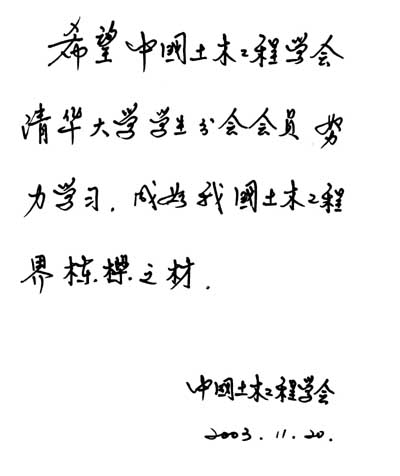 希望中國土木工程学会
清华大学学生分会会员努
力学习，成为我國土木工程
界栋樑之材.
中國土木工程学会
2003.11.20.